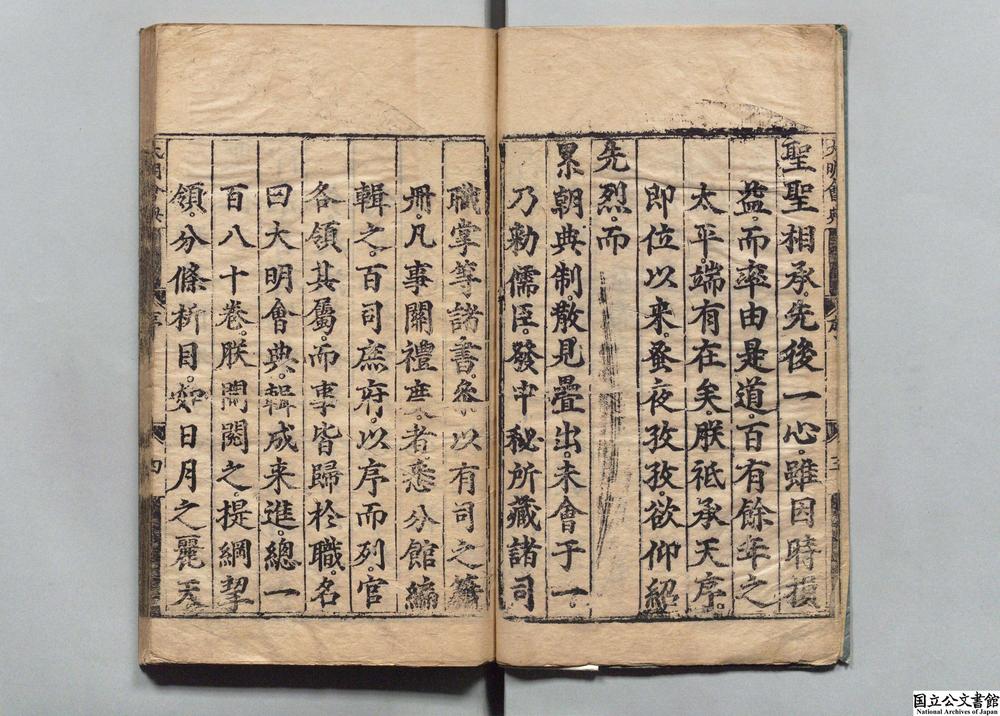 大明會典
聖聖相承。先後一心。雖因時損
益。而率由是道。百有餘年之
太平。端有在矣。朕祗承天序。
即位以来。蚤夜孜孜。欲仰紹
先烈。而
累朝典制。散見疊出。未會于一。
乃勅儒臣。發中秘所藏諸司
職掌等諸書。參以有司之籍
冊。凡事關禮度者。悉分館編
輯之。百司庶府。以序而列。官
各領其屬。而事皆歸於職。名
曰大明會典。輯成来進。總一
百八十卷。朕間閱之。提綱挈
領。分條析目。如日月之麗天
大明會典
序
四
国立公文書館
National Archives of Japan